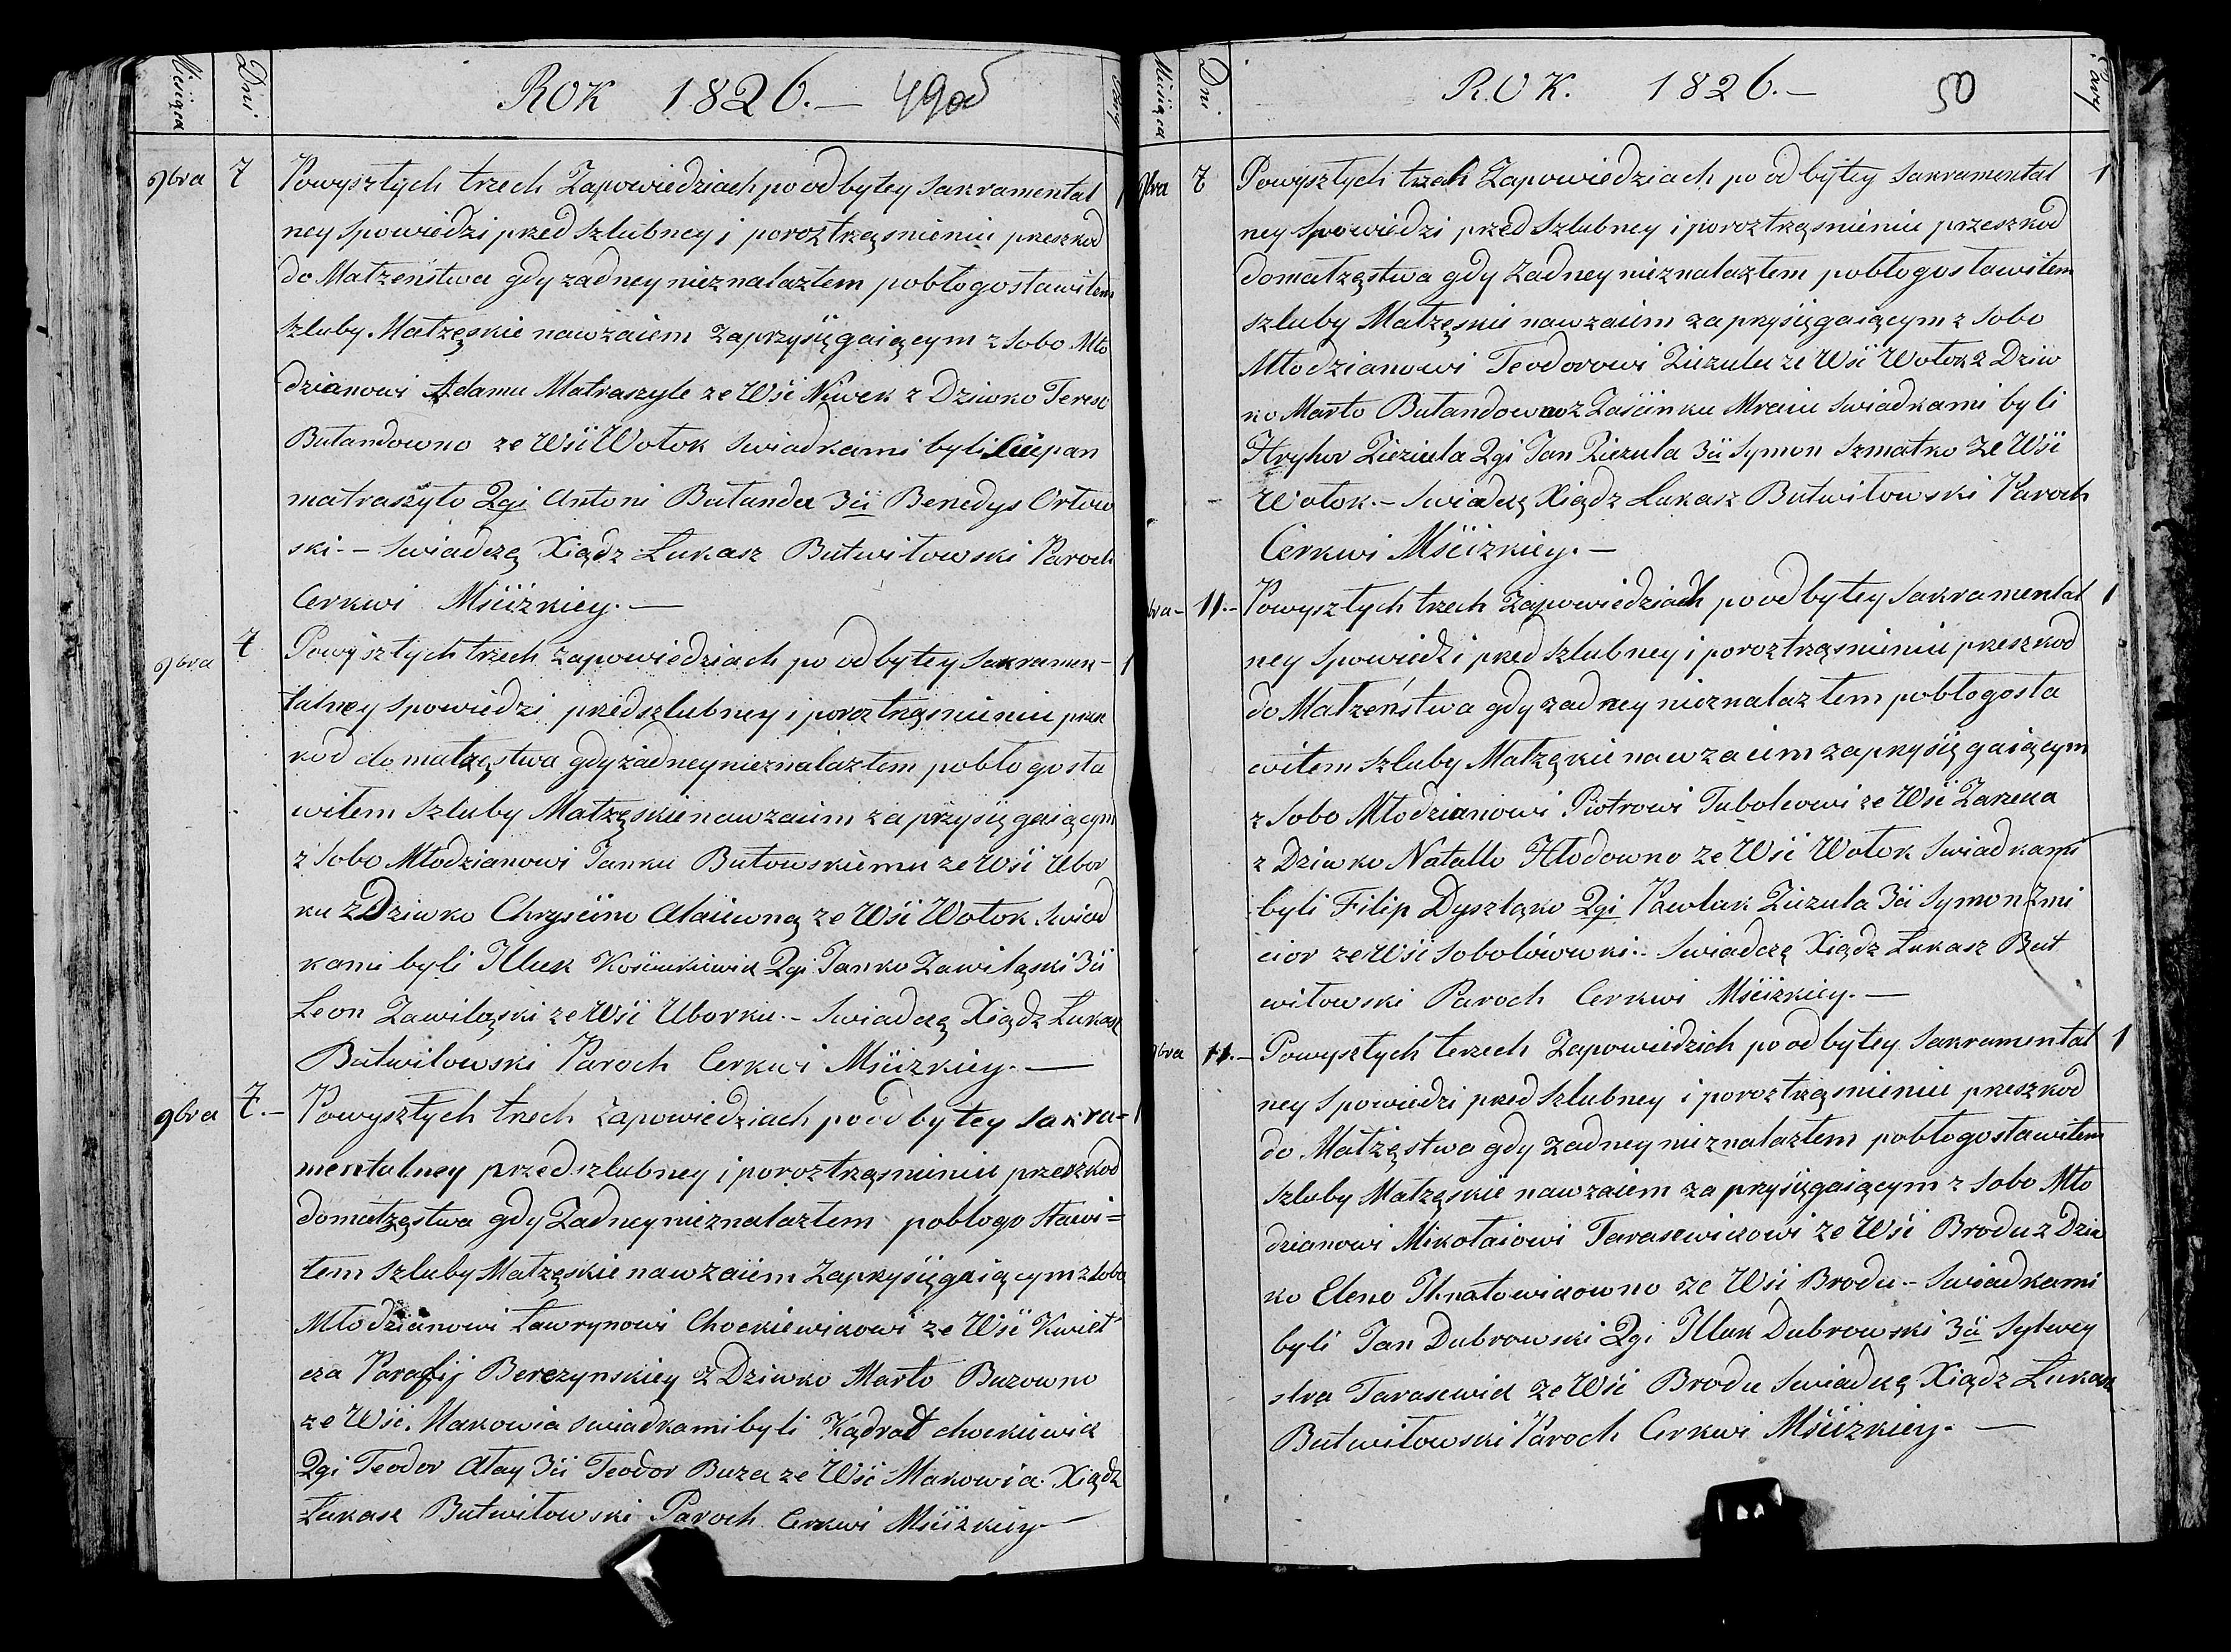 Miesiąca
Dni
ROK 1826.— 49 od
Pary
9bra 7 Powyszłych trzech Zapowiedziach po odbytey Sakramental 1
ney Spowiedzi przed Szlubney i poroztrząsnieniu przeszkod
do Małżeństwa gdy zadney nieznalazłem pobłogosławiłem
szluby Małzęskie nawzaiem zaprzysięgaiącym z Sobo Mło
dzianowi Adamu Matraszyle ze Wśi Niwek z Dziwko Tereso
Butandowno ze Wśi Wołok Swiadkami byli
matraszyło 2gi Antoni Butanda 3ci Benedys Orłow
ski.— Swiadczę Xiądz Łukasz Butwiłowski Paroch
Cerkwi Mśćiżkiey.—
9bra 7 Powyszłych trzech zapowiedziach po odbytey Sakramen- 1
talney Spowiedzi przedszlubney i poroztrząsnieniu przesz
kod do małzęstwa gdy zadney nieznalazłem pobłogosła
wiłem Szluby Małzęskie nawzaiem zaprzysięgaiącym
z Sobo Młodzianowi Janku Butowskiemu ze Wśi Ubor
ku z Dziwko Chryscino Ałaiewną ze Wśi Wołok Swiad
kami byli Illuk 2gi Janko Zawiląski 3ci
Leon Zawiląski ze Wśi Uborku.— Swiadczę Xiądz Łukasz
Butwiłowski Paroch Cerkwi Mśćiżkiey.—
9bra 7.— Powyszłych trzech Zapowiedziach po odbytey Sakra= 1
mentalney przedszlubney i poroztrząsnieniu przeszkod
domałzęstwa gdy Zadney nieznalazłem pobłogosławi=
łem szluby Małzęskie nawzaiem Zaprzysięgaiącym z Sobo
Młodzianowi Ławrynowi Chockiewiczowi ze Wśi Kwiet
cza Parafij Berezynskiey z Dziwko Marto Buzowno
ze Wśi Makowia swiadkami byli Kądrad chockiewicz
2gi Teodor Ałay 3ci Teodor Buza ze Wśi Makowia. Xiądz
Łukasz Butwiłowski Paroch Cerkwi Mśćiżkiey—
Miesiąca
Dni.
ROK. 1826.— 50
Pary
9bra 7 Powyszłych trzech Zapowiedziach po odbytey Sakramental 1
ney Spowiedzi przed Szlubney i poroztrząsnieniu przeszkod
domałzęstwa gdy żadney nieznalazłem pobłogosławiłem
szluby Małzęskie nawzaiem zaprzysięgaiącym z Sobo
Młodzianowi Teodorowi Ziezulu ze Wśi Wołok z Dziw
ko Marto Butandowno z Zaścinku Mraiu swiadkami byli
Hryhor Zieziula 2gi Jan Ziezula 3ci Symon Szmatko ze Wśi
Wołok.— Swiadczę Xiądz Łukasz Butwiłowski Paroch
Cerkwi Mśćiżkiey.—
9bra— 11.— Powyszłych trzech Zapowiedziach po odbytey Sakramental 1
ney Spowiedzi przed szlubney i poroztrząsnieniu przeszkod
do Małzeństwa gdy zadney nieznalazłem pobłogosła
wiłem szluby Małzęskie nawzaiem zaprzysięgaiącym
z Sobo Młodzianowi Piotrowi Tubolcowi ze Wśi Zarzecza
z Dziwko Natallo Hłodowno ze Wśi Wołok Swiadkami
byli Filip Dyszląko 2gi Pawluk Ziezula 3ci Symon Zmi
cior ze Wśi Sobolówki.— Swiadczę Xiądz Łukasz But
wiłowski Paroch Cerkwi Mśćiżkiey.—
9bra 11.— Powyszłych terzech Zapowiedzich po odbytey Sakramental 1
ney Spowiedzi przed szlubney i poroztrząsnieniu przeszkod
do Małzęstwa gdy zadney nieznalazłem pobłogosławiłem
Szluby Małzęskie nawzaiem zaprzysięgaiącym z Sobo Mło
dzianowi Mikołaiowi Tarasewiczowi ze Wśi Brodu z Dziw
ko Eleno Ihnatowiczowno ze Wśi Brodu.— Swiadkami
byli Jan Dubrowski 2gi Illuk Dubrowski 3ci Sylwey
stra Tarasewicz ze Wśi Brodu Swiadczę Xiądz Łukasz
Butwiłowski Paroch Cerkwi Mśćiżkiey.—